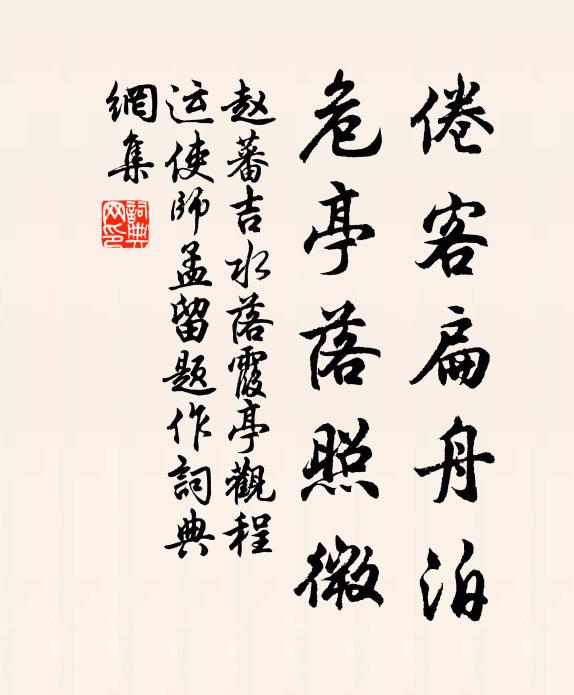 倦客扁舟泊
危亭落照微
赵蕃吉水落霞亭觀程
运使师孟留题作詞典
網集
詞典
网印